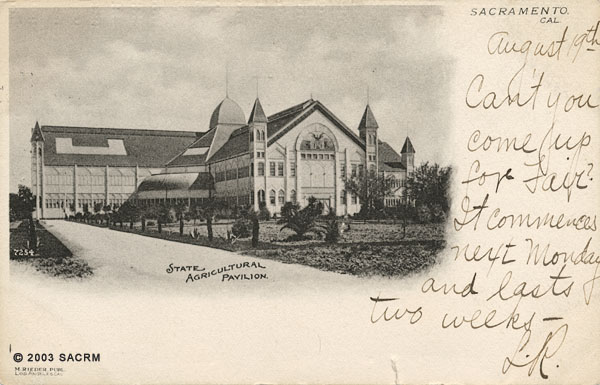 SACRAMENTO,
CAL.
August 19th
Can't you
come up
for Fair?
It commences
next Monday
and lasts
two weeks—
L.R.
7254
STATE
AGRICULTURAL
PAVILION.
© 2003 SACRM
M. RIEDER, PUBL.
LOS ANGELES, CAL.